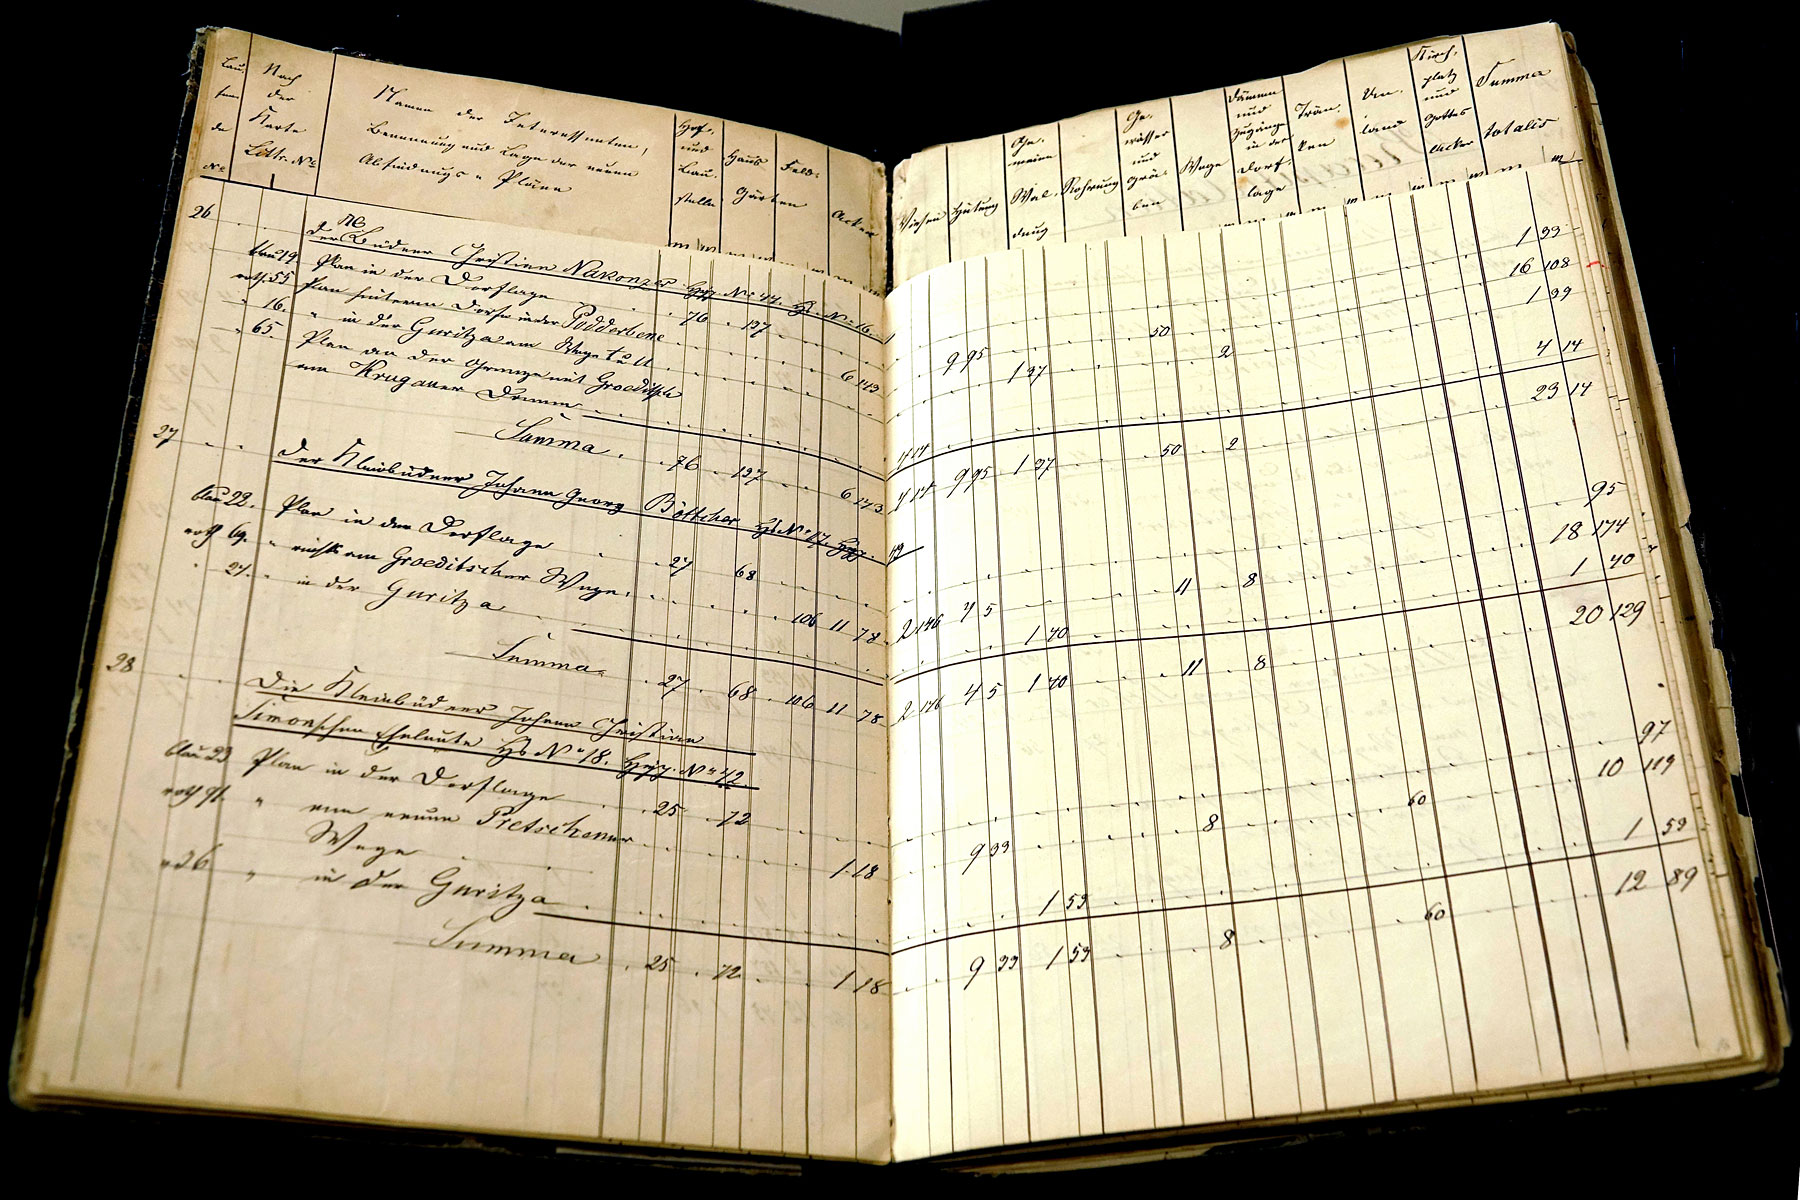 Lau-
fen-
de
No
Nach
der
Karte
Littr. No
Namen der Interessenten,
Benennung und Lage der neuen
Abfindungs-Pläne
Hof-
und
Bau-
stelle
Haus
Gärten
Feld-
Acker
Wiesen
Hütung
Ge-
meine
Wal-
dung
Rohrung
Ge-
wässer
und
Grä-
ben
Wege
Dämme
und
Zugänge
in der
Dorf-
lage
Trän-
ken
Un-
land
Kirch-
platz
und
Gottes
Acker
Summa
totalis
26 der Büdner Christian Nakonzer Hyp. No 44. Hs. No 16.
blau 19. Plan in der Dorflage 76 137 1 33
roth 55 Plan hinterm Dorfe in der Podderbene 6 143 9 95 50 16 108
" 16. " in der Guritza am Wege tu u 1 37 2 1 39
" 65. Plan an der Grenze mit Groeditsch
am Krugauer Damm 4 14 4 14
Summa 76 137 6 143 4 14 9 95 1 37 50 2 23 14
27 Der Kleinbüdner Johann Georg Böttcher Hs No 17. Hyp. 49
blau 22. Plan in der Dorflage 27 68 95
roth 69. " am Groeditscher Wege 106 11 78 2 146 4 5 11 8 18 174
" 27. " in der Guritza 1 40 1 40
Summa 27 68 106 11 78 2 146 4 5 1 40 11 8 20 129
28 Die Kleinbüdner Johann Christian
Simonschen Eheleute Hs No 18. Hyp. No 42
blau 23 Plan in der Dorflage 25 72 97
roth 91. " am neuen Pretschener
Wege 1 18 9 33 8 60 10 119
" 26 " in der Guritza 1 59 1 59
Summa 25 72 1 18 9 33 1 59 8 60 12 89